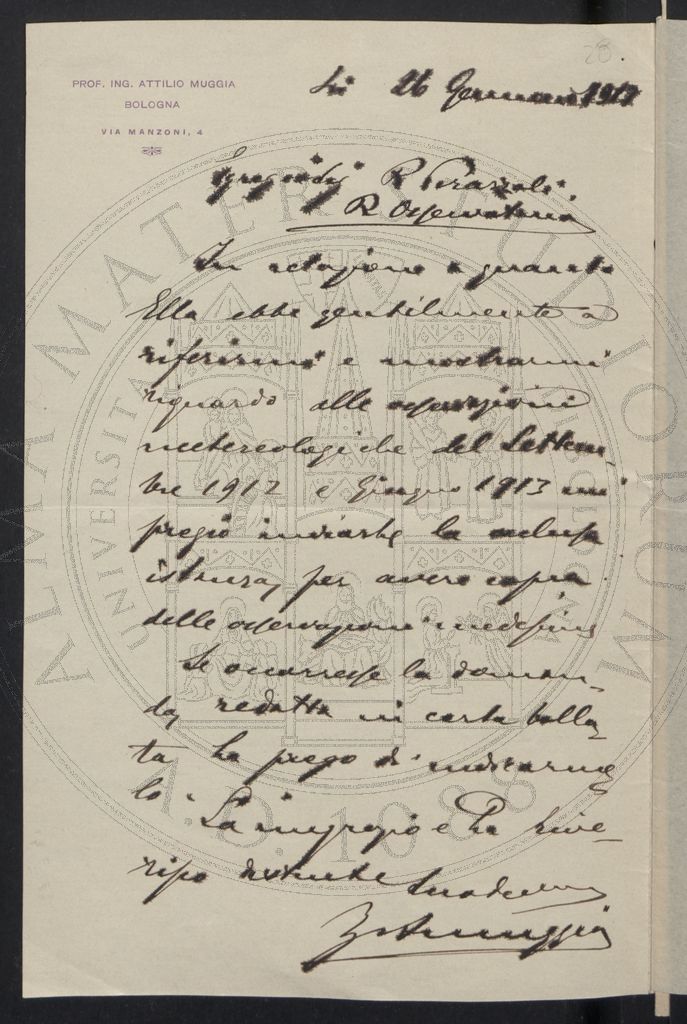 28
PROF. ING. ATTILIO MUGGIA
BOLOGNA
VIA MANZONI, 4
Lì 26 Gennaio 1917
R
R Osservatorio
In relazione a quanto
Ella ebbe gentilmente a
riferirmi e mostrarmi
riguardo alle osservazioni
metereologiche del Settem-
bre 1912 e Giugno 1913 mi
pregio inviarle la acclusa
istanza, per avere copia
delle osservazioni medesime
Se occorresse la doman-
da, redatta in carta bolla-
ta La prego di indicarme
lo. La ringrazio e La rive-
risco
Muggia
ALMA MATER STUDIORUM
UNIVERSITÀ
A.D. 1088